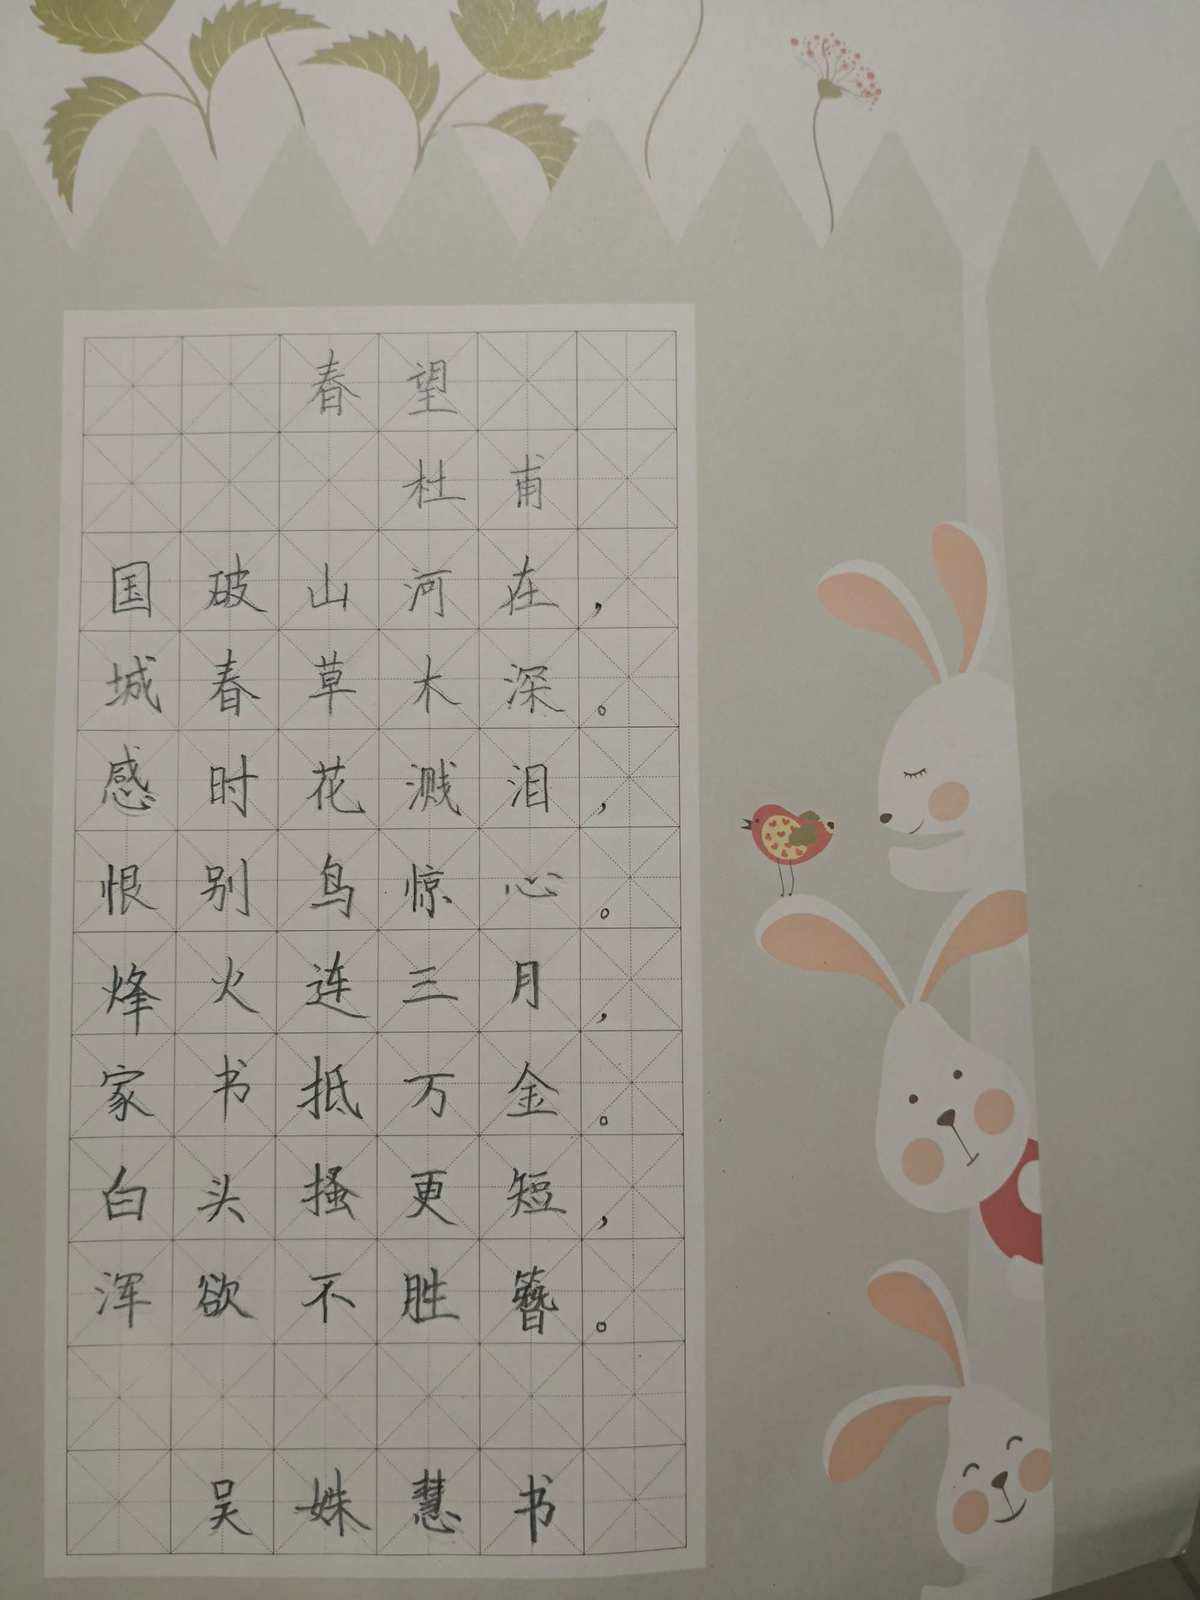 春望
杜甫
国破山河在，
城春草木深。
感时花溅泪，
恨别鸟惊心。
烽火连三月，
家书抵万金。
白头搔更短，
浑欲不胜簪。
吴姝慧书